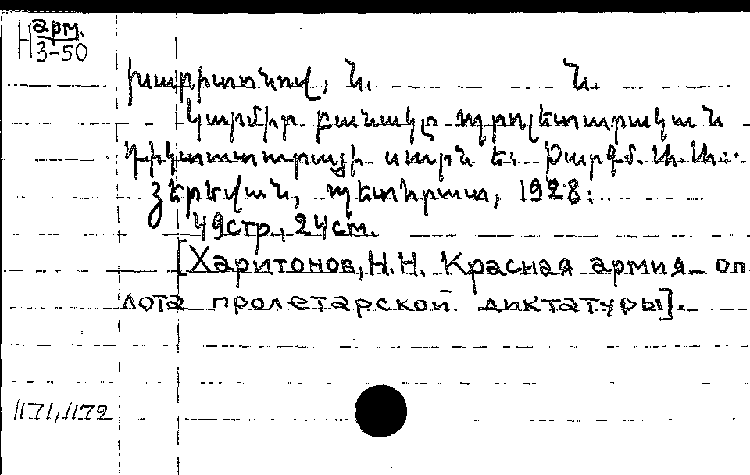 Н арм.
3-50
Խարիտոնով, Ն. Ն.
Կարմիր բանակը պրոլետարական
դիկտատուրայի սյունն է: Թարգմ. Ա. Ա.:
Յերևան, Պետհրատ, 1928:
49стр., 24см.
[Харитонов, Н.Н. Красная армия оп
лота пролетарской диктатуры].
1171,1172